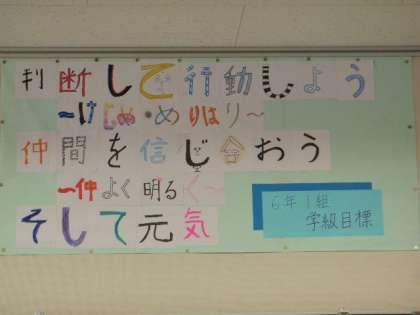 判断して行動しよう
～けじめ・めりはり～
仲間を信じ合おう
～仲よく明るく～
そして元気
6年1組
学級目標